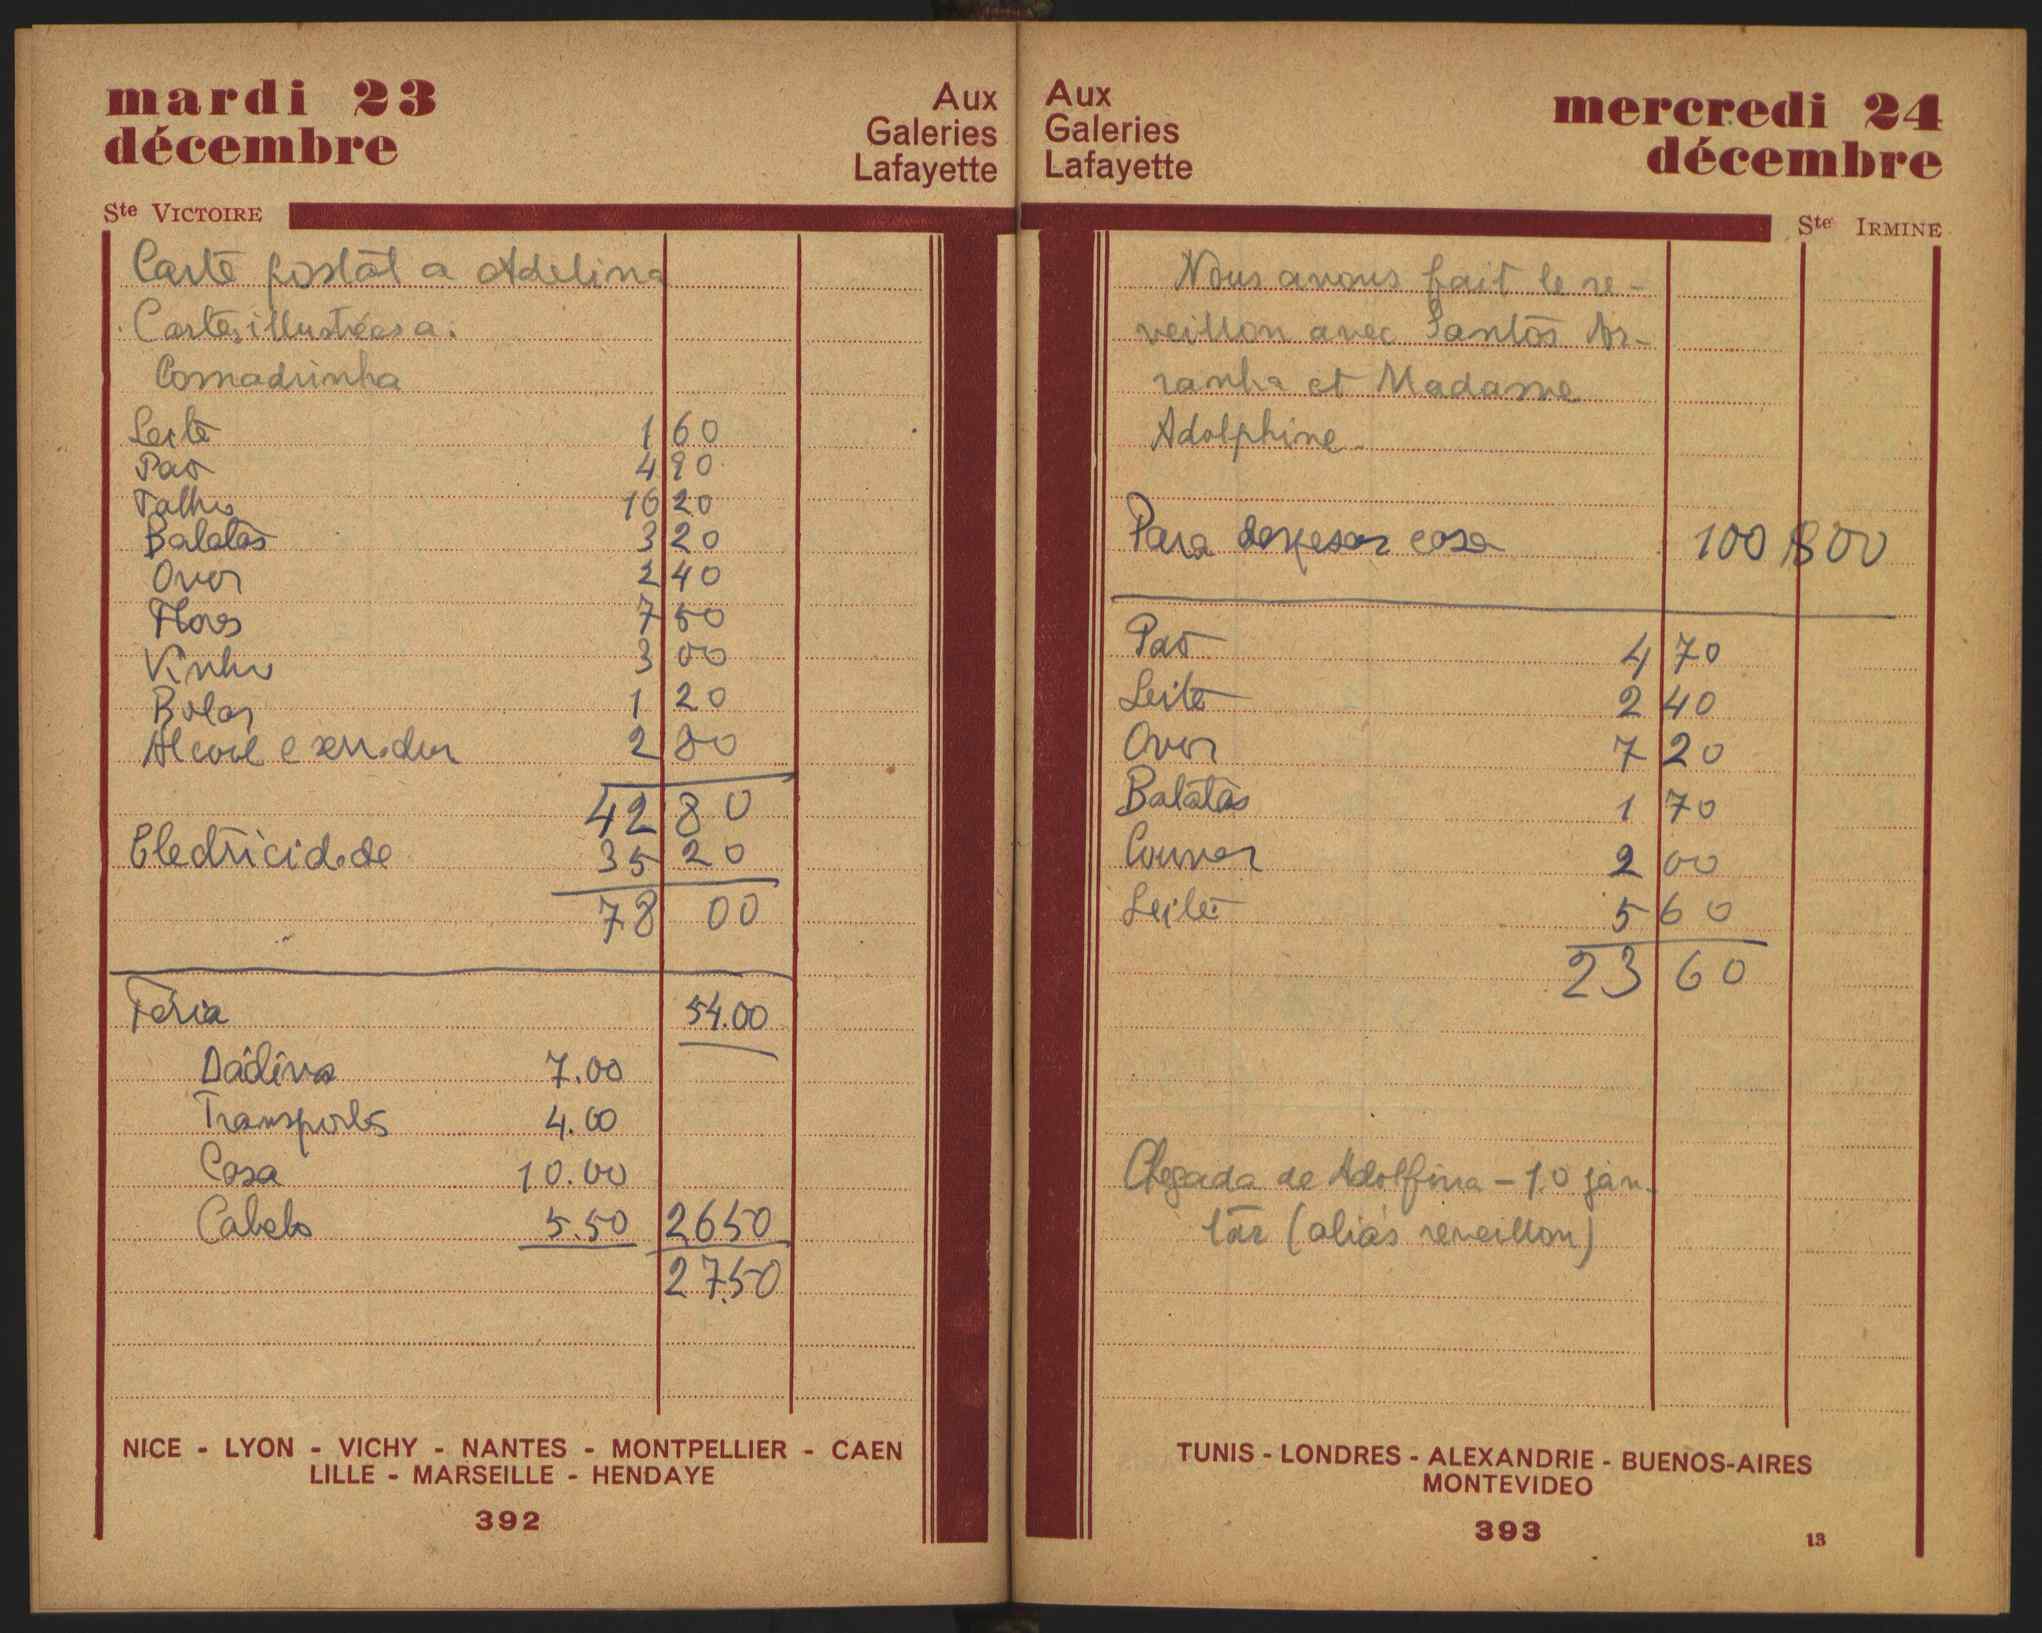 mardi 23
décembre
Aux
Galeries
Lafayette
Ste VICTOIRE
Carte postal a Adelina
Cartes illustrées a:
Comadrinha
Leite 1 60
Pão 4 90
Talho 16 20
Batatas 3 20
Ovos 2 40
Flores 7 50
Vinho 3 00
Bolos 1 20
Alcool e 2 80
42 80
Electricidade 35 20
78 00
Féria 54.00
Dádiva 7.00
Transportes 4.00
Casa 10.00
Cabelo 5.50 2650
27.50
NICE - LYON - VICHY - NANTES - MONTPELLIER - CAEN
LILLE - MARSEILLE - HENDAYE
392
Aux
Galeries
Lafayette
mercredi 24
décembre
Ste IRMINE
Nous avons fait le re-
veillon avec Santos Ar-
ranha et Madame
Adolphine.
Para despesas casa 100 $00
Pão 4 70
Leite 2 40
Ovos 7 20
Batatas 1 70
Couves 2 00
Leite 5 60
23 60
Chegada de Adolfina – 1.º jan-
tar (aliás reveillon)
TUNIS - LONDRES - ALEXANDRIE - BUENOS-AIRES
MONTEVIDEO
393
13